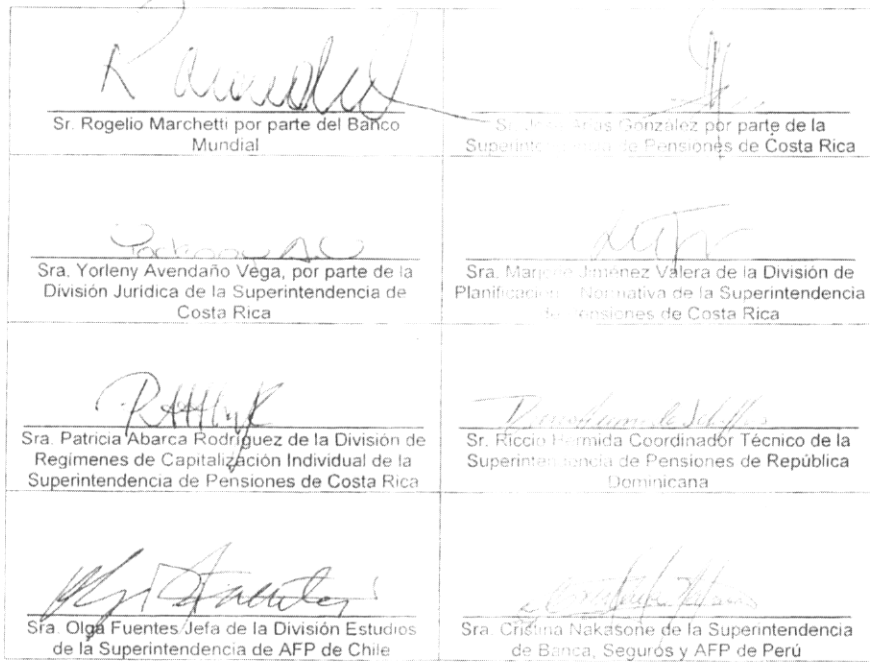 Sr. Rogelio Marchetti por parte del Banco
Mundial
Arias Gonzalez por parte de la
de Pensiones de Costa Rica
Sra. Yorleny Avendaño Vega, por parte de la
División Jurídica de la Superintendencia de
Costa Rica
Sra. Marjorie Jiménez Valera de la División de
Planificación Normativa de la Superintendencia
de Pensiones de Costa Rica
Sra. Patricia Abarca Rodríguez de la División de
Regímenes de Capitalización Individual de la
Superintendencia de Pensiones de Costa Rica
Sr. Riccio Hermida Coordinador Técnico de la
Superintendencia de Pensiones de República
Dominicana
Sra. Olga Fuentes Jefa de la División Estudios
de la Superintendencia de AFP de Chile
Sra. Cristina Nakasone de la Superintendencia
de Banca, Seguros y AFP de Perú